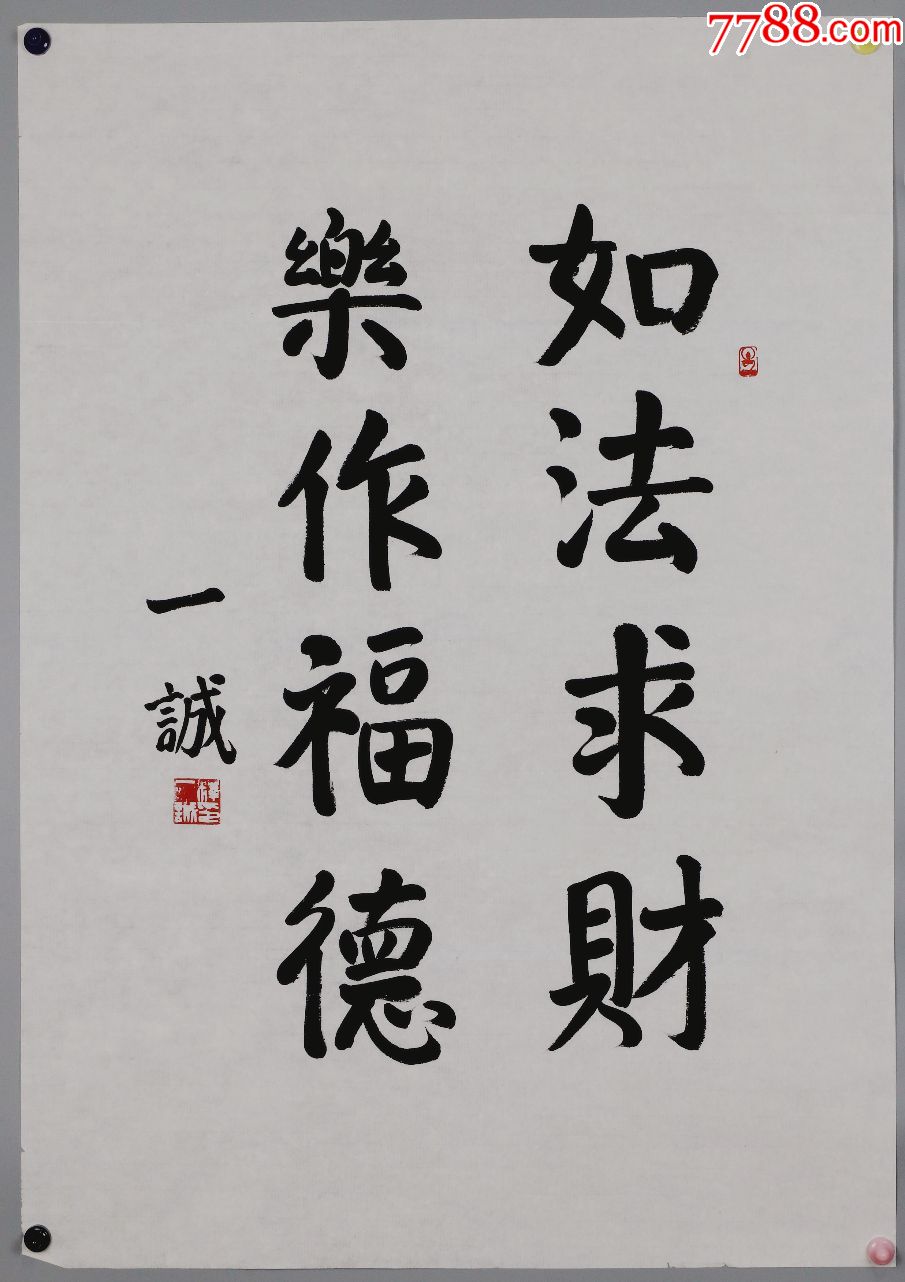 7788.com
如法求財
樂作福德
一誠